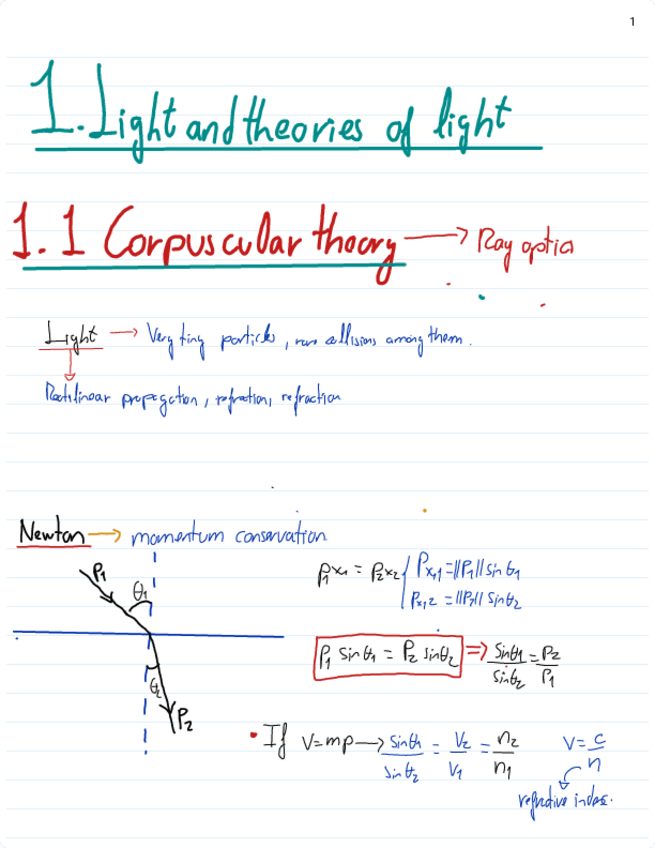 1
1. Light and theories of light
1.1 Corpuscular theory → Ray optics
Light → Very tiny particles, rare collisions among them.
Rectilinear propagation, refration, refraction
Newton → momentum conservation
P1 θ1
θ2 P2
P1x1 = P2x2 { Px,1 = ||P1|| sin θ1
Px,2 = ||P2|| sin θ2
P1 sin θ1 = P2 sin θ2 ⇒ sin θ1 / sin θ2 = P2 / P1
• If V=mp → sin θ1 / sin θ2 = V2 / V1 = n2 / n1 V = c / n
refractive index.